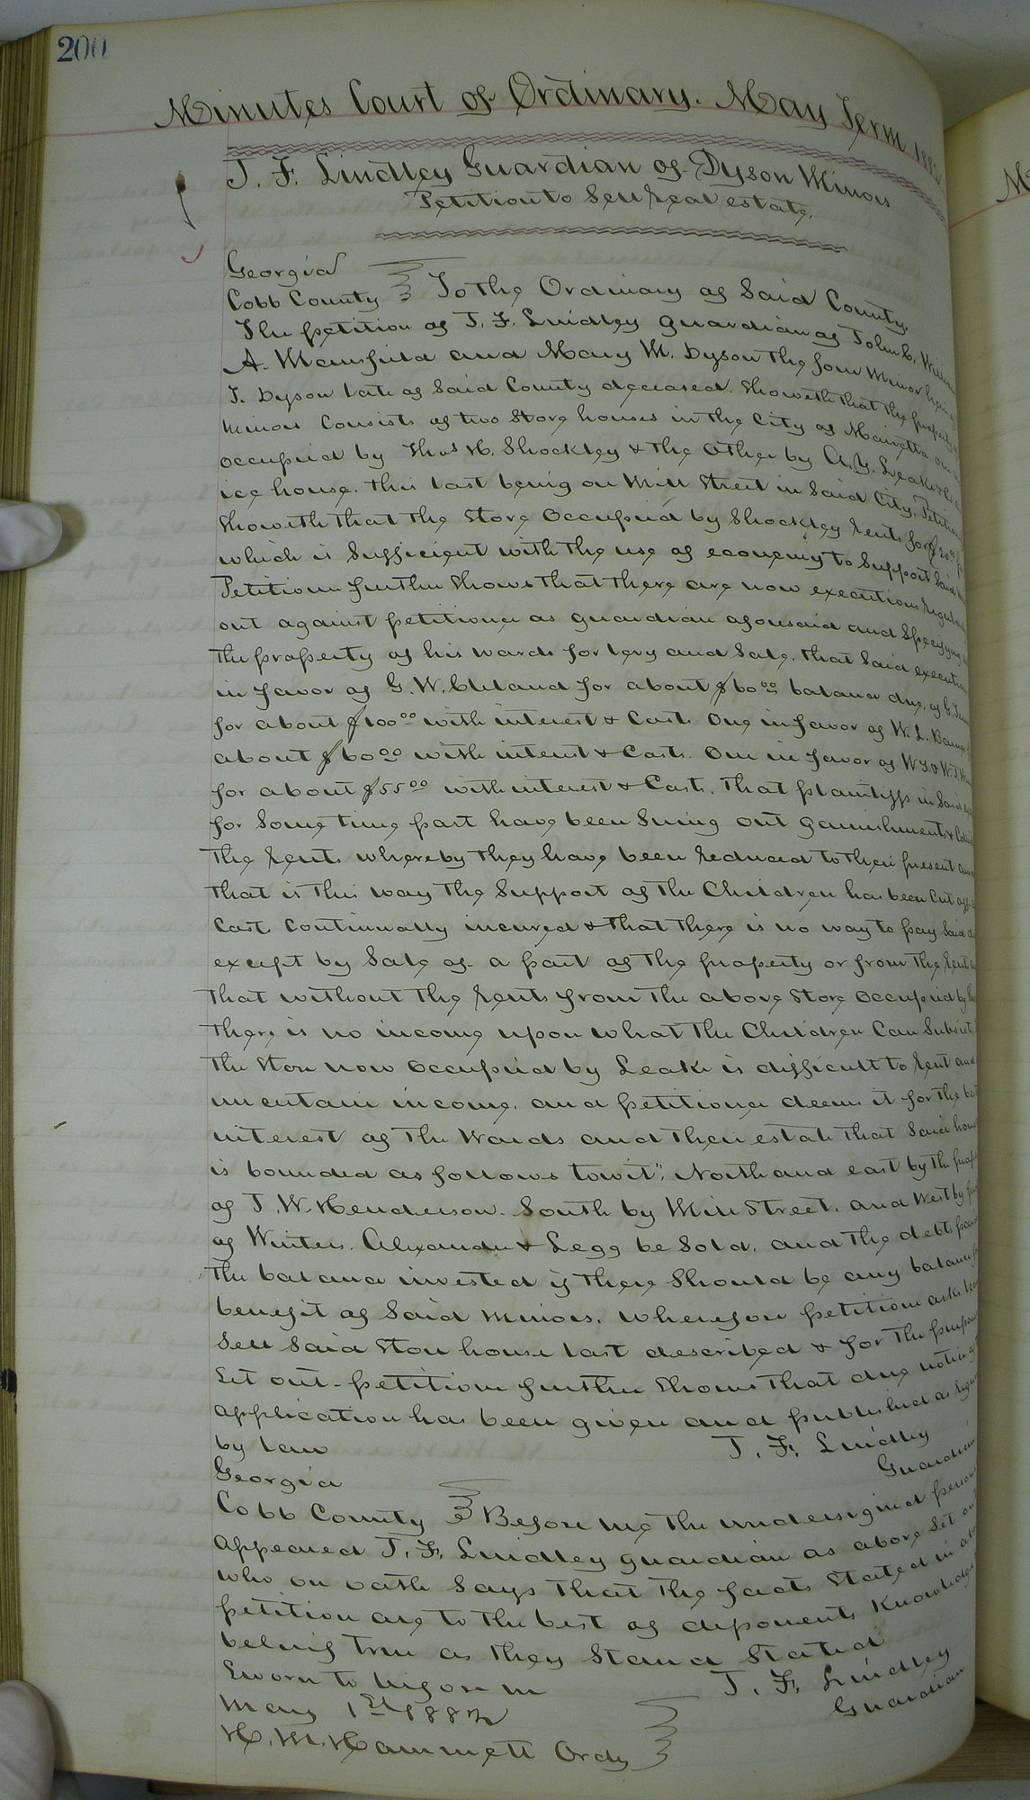 200
Minutes Court of Ordinary. May Term
J. F. Lindley Guardian of Dyson Minors
Petition to Sell real estate.
Georgia
Cobb County To the Ordinary of Said County.
The petition of J. F. Lindley guardian of John C.
A. Mansfield and Mary M. Dyson the four Minor
J. Dyson late of Said County deceased. Showeth that the property
Minors Consists of two Store houses in the City of Marietta one
occupied by Thos H. Shockley & the other by A. Y. Leake
ice house. this last being on Mill Street in Said City.
Showeth that the Store Occupied by Shockley rents for
which is Sufficient with the use of economy to Support Said
Petitioner further Shows that there are now executions
out against petitioner as guardian aforesaid and Specifying
the property of his wards for levy and Sale. that Said
in favor of G. W. Cleland for about $60.00 balance due, of G.
for about $100.00 with interest & Cost. One in favor of W. L.
about $60.00 with interest & Costs. One in favor of
for about $55.00 with interest & Costs. that plaintiffs in Said
for Some time past have been Suing out garnishments &
the rents whereby they have been reduced to their present
that is this way the Support of the Children has been Cut off
Cost Continually incured & that there is no way to pay Said
except by Sale of a part of the property or from the rents
that without the rents from the above Store occupied by
there is no income upon what the Children Can Subsist
the Store now occupied by Leake is difficult to rent and
uncertain income. and petitioner deems it for the best
interest of the Wards and their estate that Said house
is bounded as follows towit", North and east by the
of J. W. Henderson. South by Mill Street. and West by
of Winters. Alexander & Legg be Sold. and the debts
the balance invested if there Should be any balance
benefit of Said Minors. Wherefore petitioner asks
Sell Said Store house last described & for the purpose
Set out- petitioner further Shows that due notice of
application has been given and published as
by law J. F. Lindley
Guardian
Georgia
Cobb County Before me the undersigned
appeared J. F. Lindley guardian as above Set out
who on oath Says that the facts Stated in
petition are to the best of deponents Knowledge
belief true as they Stand Stated
Sworn to before me J. F. Lindley
May 1st 1882 Guardian
H. M. Hammett Ordy